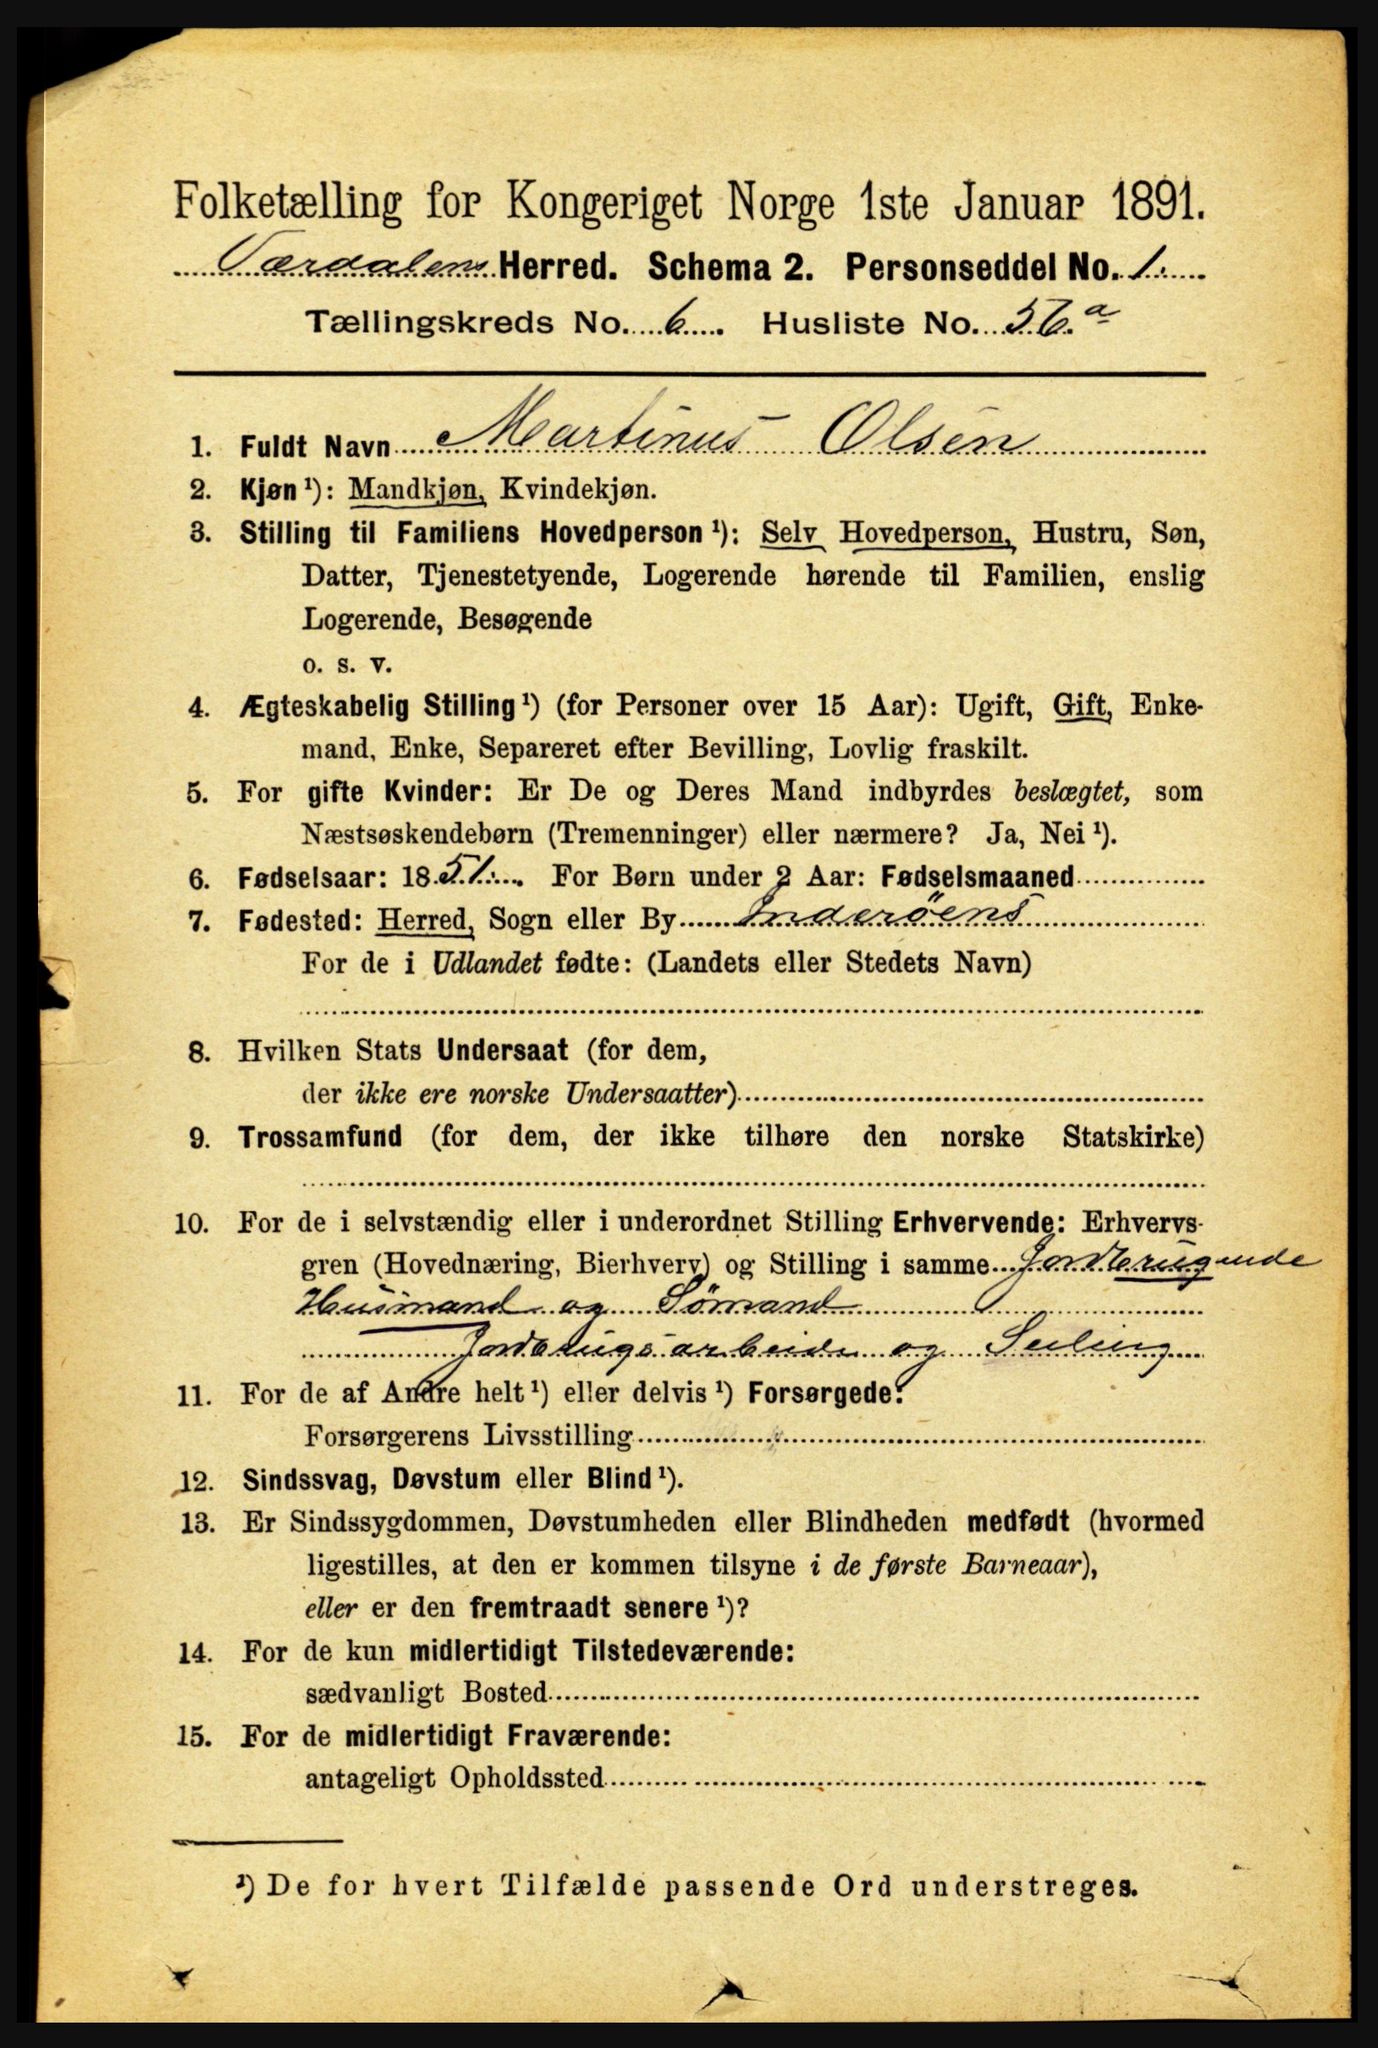 Folketælling for Kongeriget Norge 1ste Januar 1891.
Værdalens Herred. Schema 2. Personseddel No. 1.
Tællingskreds No. 6. Husliste No. 56.a
1. Fuldt Navn Martinus Olsen
2. Kjøn ¹): Mandkjøn, Kvindekjøn.
3. Stilling til Familiens Hovedperson ¹): Selv Hovedperson, Hustru, Søn,
Datter, Tjenestetyende, Logerende hørende til Familien, enslig
Logerende, Besøgende
o. s. v.
4. Ægteskabelig Stilling ¹) (for Personer over 15 Aar): Ugift, Gift, Enke-
mand, Enke, Separeret efter Bevilling, Lovlig fraskilt.
5. For gifte Kvinder: Er De og Deres Mand indbyrdes beslægtet, som
Næstsøskendebørn (Tremenninger) eller nærmere? Ja, Nei ¹).
6. Fødselsaar: 1851. For Børn under 2 Aar: Fødselsmaaned
7. Fødested: Herred, Sogn eller By Inderöens
For de i Udlandet fødte: (Landets eller Stedets Navn)
8. Hvilken Stats Undersaat (for dem,
der ikke ere norske Undersaatter)
9. Trossamfund (for dem, der ikke tilhøre den norske Statskirke)
10. For de i selvstændig eller i underordnet Stilling Erhvervende: Erhvervs-
gren (Hovednæring, Bierhverv) og Stilling i samme Jordbrugende
Husmand og Sømand
Jordbrugsarbeide og Seiling
11. For de af Andre helt ¹) eller delvis ¹) Forsørgede:
Forsørgerens Livsstilling
12. Sindssvag, Døvstum eller Blind ¹).
13. Er Sindssygdommen, Døvstumheden eller Blindheden medfødt (hvormed
ligestilles, at den er kommen tilsyne i de første Barneaar),
eller er den fremtraadt senere ¹)?
14. For de kun midlertidigt Tilstedeværende:
sædvanligt Bosted
15. For de midlertidigt Fraværende:
antageligt Opholdssted
¹) De for hvert Tilfælde passende Ord understreges.